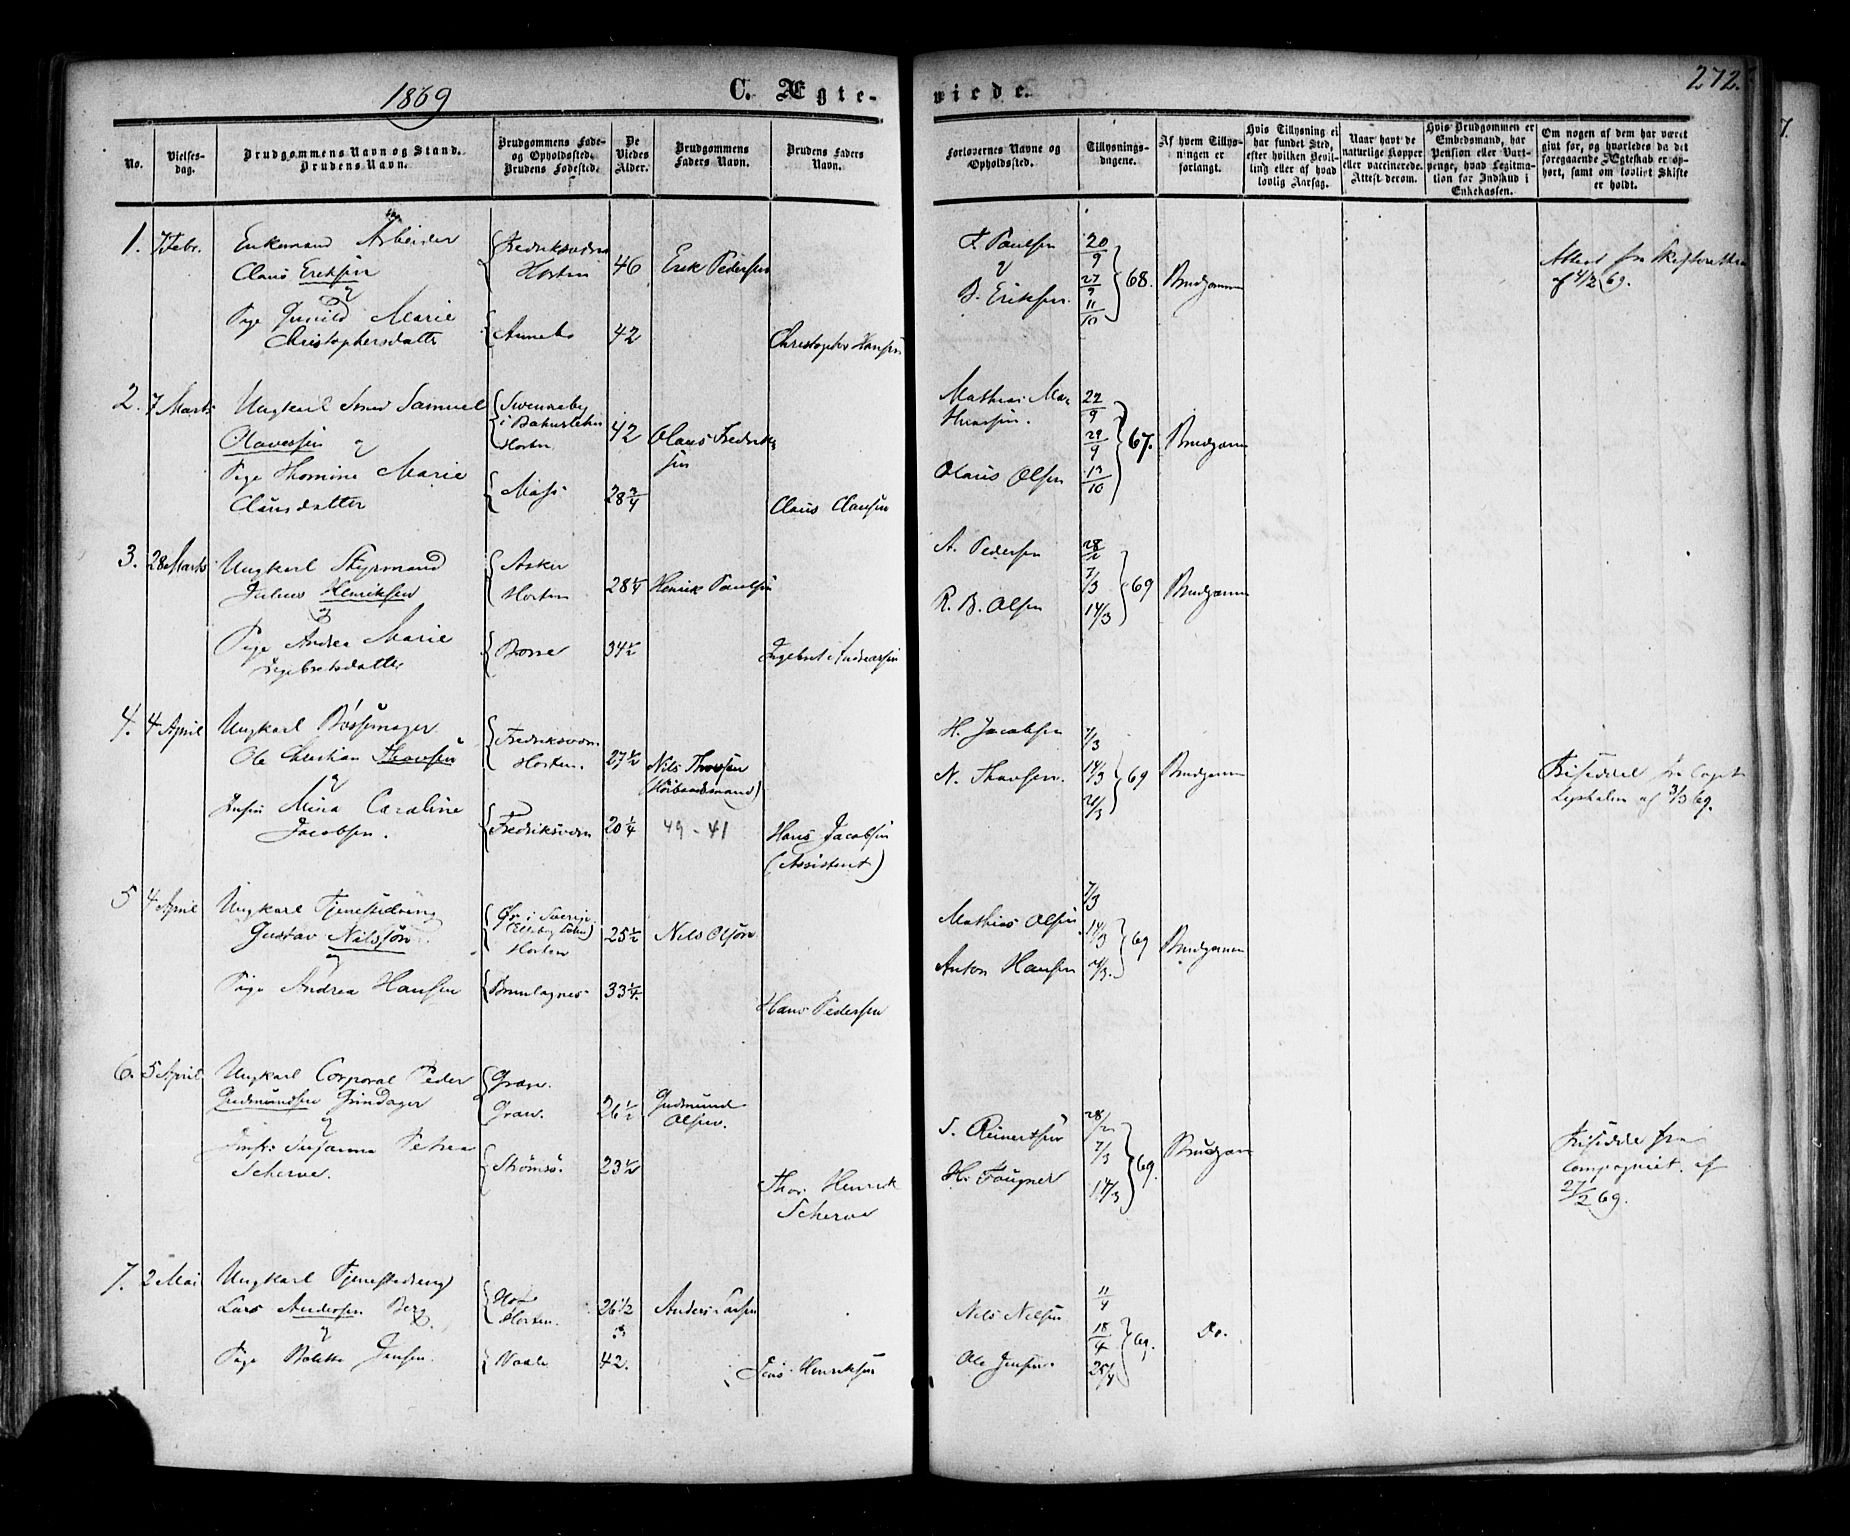 1869
C. Ægte-
viede.
272.
7.
No.
Vielses-
dag.
Brudgommens Navn og Stand.
Brudens Navn.
Brudgommens Føde-
og Opholdssted.
Brudens Fødested.
De
Viedes
Alder.
Brudgommens
Faders Navn.
Brudens Faders
Navn.
Forlovernes Navne og
Opholdssted.
Tillysnings-
dagene.
Af hvem Tillys-
ningen er
forlangt.
Hvis Tillysning ei
har fundet Sted,
efter hvilken Bevil-
ling eller af hvad
lovlig Aarsag.
Naar havt de
naturlige Kopper
eller vaccinerede.
Attest derom.
Hvis Brudgommen er
Embedsmand, har
Pension eller Vart-
penge, hvad Legitma-
tion for Indskud i
Enkekassen.
Om nogen af dem har været
givt før, og hvorledes da det
foregaaende Ægteskab er op-
hørt, samt om lovligt Skifte
er holdt.
1. 7 Febr. Enkemand Arbeider Fredriksværn F. Paulsen 20/9
Claus Eriksen Horten 46 Erik Pedersen
og B. Eriksen. 27/9 68. Brudgommen Attest fra Skifteretten
11/10 af 4/2 69.
Pige Gunild Marie Annebo 42
Christophersdatter Christopher Hansen
2. 7 Marts Ungkarl Samuel Svenneby Mathias Ma- 22/9
Olavessen i Bahuslehn 42 Olaus Fredrik- thiassen. 29/9 67. Brudgommen
og Horten sen
Pige Thomine Marie Moss 28 3/4 Olaus Olsen 13/10
Clausdatter Claus Clausen
3. 28 Marts Ungkarl Styrmand Asker A. Pedersen 28/2
Julius Henriksen Horten 28 1/4 Henrik Paulsen 7/3 69 Brudgommen
og R. B. Olsen 14/3
Pige Andrea Marie Borre 34 1/2 Ingebret Andreassen
Ingebretsdatter
4. 4 April Ungkarl Bøssemager Fredriksværn H. Jacobsen 7/3
Ole Christian Thovsen Horten. 27 1/2 Nils Thovsen N. Thovsen. 14/3 69 Brudgommen
og 21/3 af 3/3 69.
Mina Caroline Fredriksværn 20 1/4 49 - 41 Hans Jacobsen
Jacobsen. (Assistent)
5 4 April Ungkarl Tjenestedreng Ør i Sverige 7/3
Gustav Nilssøn Horten 25 1/2 Nils Olsøn Mathias Olsen 14/3 69 Brudgommen
og Anton Hansen 21/3.
Pige Andrea Hansen Brunlagnes 33 1/4. Hans Pedersen
6. 5 April Ungkarl Corporal Peder Gran.
Gudmundsen Grindager Gran. 26 1/2 Gudmund 28/2
og Olsen. S. Reinertsen 7/3 Brudgom
Susanna Petrea Strømsø. 23 1/2 H. Fougner 14/3 69. Compagniet. af
Scherve. Thor Henrik 27/2 69.
Scherve
7. 2 Mai Ungkarl Tjenestedreng 11/4
Lars Andersen Berg Hof Horten. 26 1/2 Anders Larsen Nils Nilsen 18/4 69. Do.
og
Pige Bolette Jensen. Vaale 42. Jens Henriksen Ole Jensen. 25/4